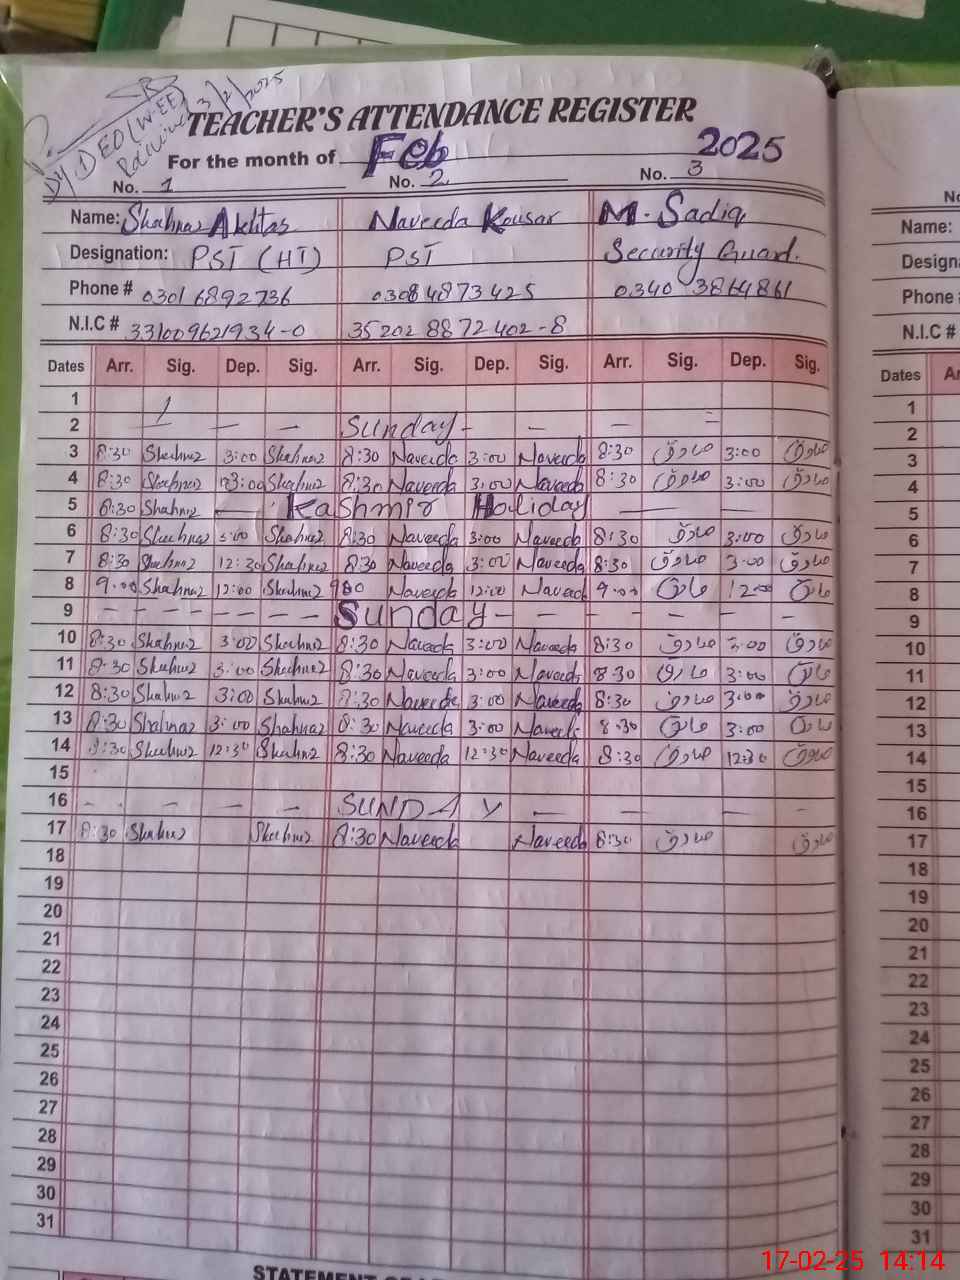 3/2/2025
Dy DEO (W-EE)
TEACHER'S ATTENDANCE REGISTER
For the month of Feb 2025
No. 1 No. 2 No. 3
Name: Shahnaz Akhtar Naveeda Kousar M. Sadiq
Designation: PST (HT) PST Security Guard.
Phone # 0301 6892736 0308 4873425 0340 3864861
N.I.C # 331009621934-0 35202 8872402-8
Dates Arr. Sig. Dep. Sig. Arr. Sig. Dep. Sig. Arr. Sig. Dep. Sig.
1
2 — — — Sunday - — — =
3 8:30 Shahnaz 3:00 Shahnaz 8:30 Naveeda 3:00 Naveeda 8:30 صادق 3:00 صادق
4 8:30 Shahnaz 3:00 Shahnaz 8:30 Naveeda 3:00 Naveeda 8:30 صادق 3:00 صادق
5 8:30 Shahnaz — Kashmir Holiday — —
6 8:30 Shahnaz 3:00 Shahnaz 8:30 Naveeda 3:00 Naveeda 8:30 صادق 3:00 صادق
7 8:30 Shahnaz 12:30 Shahnaz 8:30 Naveeda 3:00 Naveeda 8:30 صادق 3:00 صادق
8 9:00 Shahnaz 12:00 Shahnaz 900 Naveeda 12:00 Naveed 9:00 صادق 12:00 صادق
9 — — — — — Sunday - — — — —
10 8:30 Shahnaz 3:00 Shahnaz 8:30 Naveeda 3:00 Naveeda 8:30 صادق 3:00 صادق
11 8:30 Shahnaz 3:00 Shahnaz 8:30 Naveeda 3:00 Naveeda 8:30 صادق 3:00 صادق
12 8:30 Shahnaz 3:00 Shahnaz 8:30 Naveeda 3:00 Naveeda 8:30 صادق 3:00 صادق
13 8:30 Shahnaz 3:00 Shahnaz 8:30 Naveeda 3:00 Naveeda 8:30 صادق 3:00 صادق
14 8:30 Shahnaz 12:30 Shahnaz 8:30 Naveeda 12:30 Naveeda 8:30 صادق 12:30 صادق
15
16 - — — — SUNDAY — — — —
17 8:30 Shahnaz Shahnaz 8:30 Naveeda Naveeda 8:30 صادق صادق
18
19
20
21
22
23
24
25
26
27
28
29
30
31
Name:
Phone #
N.I.C #
Dates
1
2
3
4
5
6
7
8
9
10
11
12
13
14
15
16
17
18
19
20
21
22
23
24
25
26
27
28
29
30
31
17-02-25 14:14